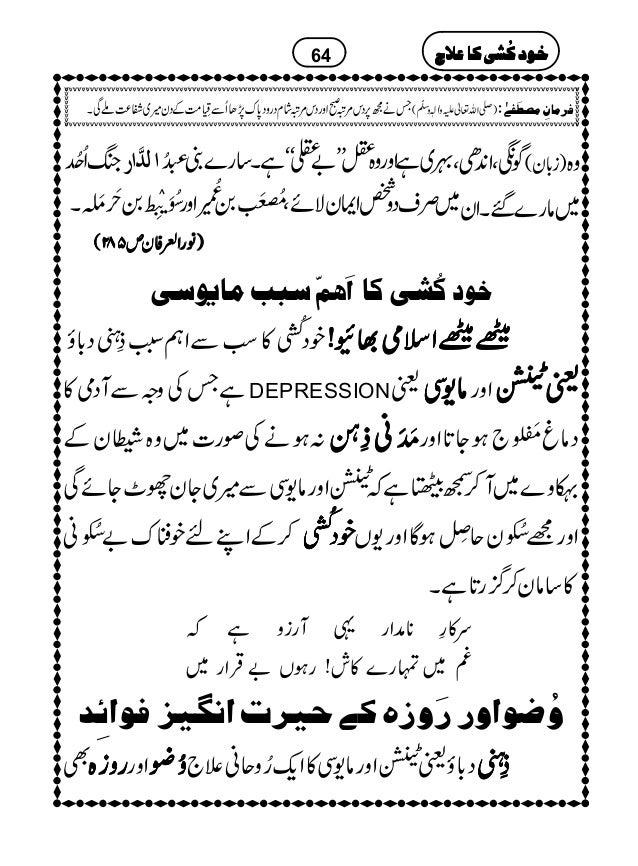 خود کُشی کا علاج
64
فرمانِ مصطَفٰے : (صلی اللہ تعالیٰ علیہ والہٖ وسلّم) جس نے مجھ پر دس مرتبہ صبح اور دس مرتبہ شام درود پاک پڑھا اُسے قیامت کے دن میری شفاعت ملے گی۔
وہ (زبان) گونگی، اندھی، بہری ہے اور وہ عقل ’’بے عقلی‘‘ ہے۔ سارے بنی عبدُ الدَّار جنگ اُحُد
میں مارے گئے۔ ان میں صرف دو شخص ایمان لائے، مُصعَب بن عُمیر اور سُوَیبِط بن حَرمَلہ۔
(نورالعرفان ص ۲۸۵)
خود کُشی کا اَھمّ سبب مایوسی
میٹھے میٹھے اسلامی بھائیو! خودکُشی کا سب سے اہم سبب ذِہنی دباؤ
یعنی ٹینشن اور مایوسی یعنی DEPRESSION ہے جس کی وجہ سے آدمی کا
دماغ مَفلوج ہو جاتا اور مَدَنی ذِہن نہ ہونے کی صورت میں وہ شیطان کے
بہکاوے میں آ کر سمجھ بیٹھتا ہے کہ ٹینشن اور مایوسی سے میری جان چھوٹ جائے گی
اور مجھے سُکون حاصِل ہوگا اور یوں خودکُشی کر کے اپنے لئے خوفناک بے سُکونی
کا سامان کر گزرتا ہے۔
سرکارِ نامدار یہی آرزو ہے کہ
غم میں تمہارے کاش! رہوں بے قرار میں
وُضو اور رَوزہ کے حیرت انگیز فوائد
ذِہنی دباؤ یعنی ٹینشن اور مایوسی کا ایک رُوحانی علاج وُضو اور روزہ بھی